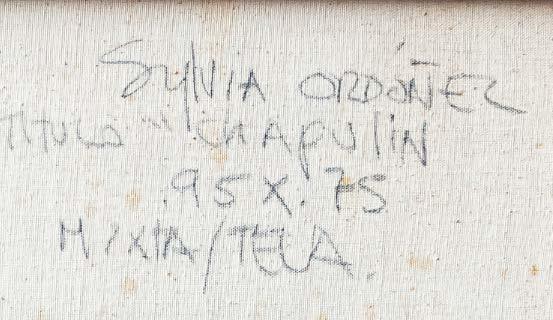 Sylvia ORDÓÑEZ
TÍTULO "" CHAPULIN
.95 X .75
MIXTA/TELA.